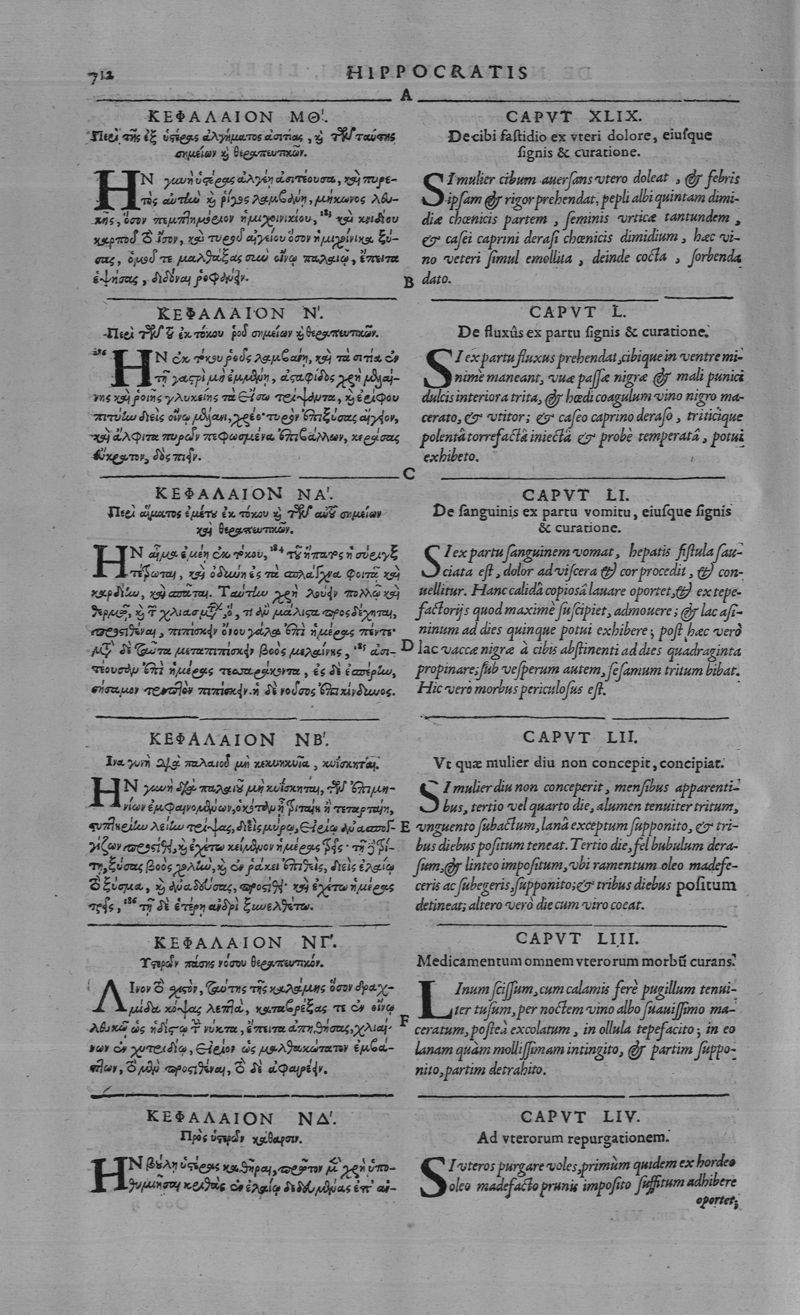 712
HIPPOCRATIS
A
ΚΕΦΑΛΑΙΟΝ ΜΘ΄.
Περὶ τῆς ἐξ ὑστέρας ἀλγήματος ἀσιτίας, καὶ τῶν ταύτης
σημείων καὶ θεραπευτικῶν.
ΗΝ γυνὴ ὑστέρας ἀλγέῃ ἀσιτέουσα, καὶ πυρε-
τὸς αὐτὴν καὶ ῥῖγος λαμβάνῃ, μήκωνος λδυ-
κῆς, ὅσον πεμπτημόριον ἡμιχοινικίου, 183 καὶ κνιδίου
καρποῦ τὸ ἴσον, καὶ τυροῦ αἰγείου ὅσον ἡμιχοίνικα ξύ-
σας, ὁμοῦ τε μαλθάξας σὺν οἴνῳ παλαιῷ, ἔπειτα
ἑψήσας, διδόναι ῥοφεῖν.
B
ΚΕΦΑΛΑΙΟΝ Ν΄.
Περὶ τῶν τοῦ ἐκ τόκου ῥοῦ σημείων καὶ θεραπευτικῶν.
ΗΝ ἐκ τόκου ῥοῦς λαμβάνῃ, καὶ τὰ σιτία ἐν
τῇ γαστρὶ μὴ ἐμμένῃ, ἀσταφίδος χρὴ μελαί-
νης καὶ ῥοιῆς γλυκείης τὰ ἔσω τρίψαντα, καὶ ἐρίφου
πιτύην διεὶς οἴνῳ μέλανι, χρέο· τυρὸν ἐπιξύσας αἴγειον,
καὶ ἄλφιτα πυρῶν πεφωσμένα ἐπιβάλλων, κεράσας
εὔκρατον, δὸς πιεῖν.
C
ΚΕΦΑΛΑΙΟΝ ΝΑ΄.
Περὶ αἵματος ἐμέτου ἐκ τόκου καὶ τῶν αὐτοῦ σημείων
καὶ θεραπευτικῶν.
ΗΝ αἷμα ἐμέῃ ἐκ τόκου, 184 τοῦ ἥπατος ἡ σύριγξ
τέτρωται, καὶ ὀδύνη ἐς τὰ σπλάγχνα φοιτᾷ καὶ
καρδίην, καὶ σπᾶται. Ταύτην χρὴ λούειν πολλῷ καὶ
θερμῷ, καὶ τῶν χλιασμάτων, ὅ, τι ἂν μάλιστα προσδέχηται,
προστιθέναι, πιπίσκειν ὄνου γάλα ἐπὶ ἡμέρας πέντε·
μετὰ δὲ ταῦτα μεταπιπίσκειν βοὸς μελαίνης, 185 ἀσι-
D
τέουσαν ἐπὶ ἡμέρας τεσσαράκοντα, ἐς δὲ ἑσπέρην,
σήσαμον τριπτὸν πιπίσκειν. ἡ δὲ νοῦσος ἐπικίνδυνος.
ΚΕΦΑΛΑΙΟΝ ΝΒ΄.
Ἵνα γυνὴ διὰ παλαιοῦ μὴ κεκυηκυῖα, κυΐσκηται.
ΗΝ γυνὴ διὰ παλαιοῦ μὴ κυΐσκηται, τῶν ἐπιμη-
νίων ἐμφαινομένων, ὁκόταν ᾖ τριταίη ἢ τεταρταίη,
στυπτηρίην λείην τρίψας, διεὶς μύρῳ, εἰρίῳ ἀνασπογ-
E
γίζων προσθεῖναι, καὶ ἐχέτω κείμενον ἡμέρας τρεῖς· τῇ δὲ τρί-
τῃ, ξύσας βοὸς χολὴν, καὶ ἐν ῥάκει ἐπιθεὶς, διεὶς ἐλαίῳ
τὸ ξύσμα, καὶ ἀναδεύσας, προσθεῖναι· καὶ ἐχέτω ἡμέρας
τρεῖς, 186 τῇ δὲ ἑτέρῃ ἀνδρὶ ξυνελθέτω.
ΚΕΦΑΛΑΙΟΝ ΝΓ΄.
Ὑστερῶν πάσης νόσου θεραπευτικόν.
ΛΙνον τὸ χιστὸν, ταύτης τῆς καλάμης ὅσον δραχ-
μίδα κόψας λεπτὰ, καταβρέξας τε ἐν οἴνῳ
λδυκῷ ὡς ἡδίστῳ τὴν νύκτα, ἔπειτα ἀπηθήσας, χλιαί-
F
νων ἐν χυτριδίῳ, εἰρίον ὡς μαλθακώτατον ἐμβά-
πτων, τὸ μὲν προστιθέναι, τὸ δὲ ἀφαιρέειν.
ΚΕΦΑΛΑΙΟΝ ΝΔ΄.
Πρὸς ὑστερῶν κάθαρσιν.
ΗΝ βούλῃ ὑστέρας καθῆραι, πρῶτον μὲν χρὴ ὑπο-
θυμιῆσαι κριθὰς ἐν ἐλαίῳ δεδευμένας ἐπ' ἀν-
CAPVT XLIX.
De cibi fastidio ex vteri dolore, eiusque
signis & curatione.
SI mulier cibum auersans vtero doleat, & febris
ipsam & rigor prehendat, pepli albi quintam dimi-
diæ chœnicis partem, seminis vrticæ tantundem,
& casei caprini derasi chœnicis dimidium, hæc vi-
no veteri simul emollita, deinde cocta, sorbenda
dato.
CAPVT L.
De fluxûs ex partu signis & curatione.
SI ex partu fluxus prehendat, cibique in ventre mi-
nimè maneant, vuæ passæ nigræ & mali punici
dulcis interiora trita, & hœdi coagulum vino nigro ma-
cerato, & vtitor; & caseo caprino deraso, triticique
polentâ torrefactâ iniectâ & probè temperatâ, potui
exhibeto.
CAPVT LI.
De sanguinis ex partu vomitu, eiusque signis
& curatione.
SI ex partu sanguinem vomat, hepatis fistula sau-
ciata est, dolor ad viscera & cor procedit, & con-
uellitur. Hanc calidâ copiosâ lauare oportet, & ex tepe-
factorijs quod maximè suscipiet, admouere; & lac asi-
ninum ad dies quinque potui exhibere; post hæc verò
lac vaccæ nigræ à cibis abstinenti ad dies quadraginta
propinare; sub vesperum autem, sesamum tritum bibat.
Hic vero morbus periculosus est.
CAPVT LII.
Vt quæ mulier diu non concepit, concipiat.
SI mulier diu non conceperit, mensibus apparenti-
bus, tertio vel quarto die, alumen tenuiter tritum,
vnguento subactum, lanâ exceptum supponito, & tri-
bus diebus positum teneat. Tertio die, fel bubulum dera-
sum, & linteo impositum, vbi ramentum oleo madefe-
ceris ac subegeris, supponito; & tribus diebus positum
detineat; altero verò die cum viro coeat.
CAPVT LIII.
Medicamentum omnem vterorum morbū curans.
LInum scissum, cum calamis ferè pugillum tenui-
ter tusum, per noctem vino albo suauissimo ma-
ceratum, posteà excolatum, in ollula tepefacito; in eo
lanam quàm mollissimam intingito, & partim suppo-
nito, partim detrahito.
CAPVT LIV.
Ad vterorum repurgationem.
SI vteros purgare voles, primùm quidem ex hordeo
oleo madefacto prunis imposito suffitum adhibere
oportet;